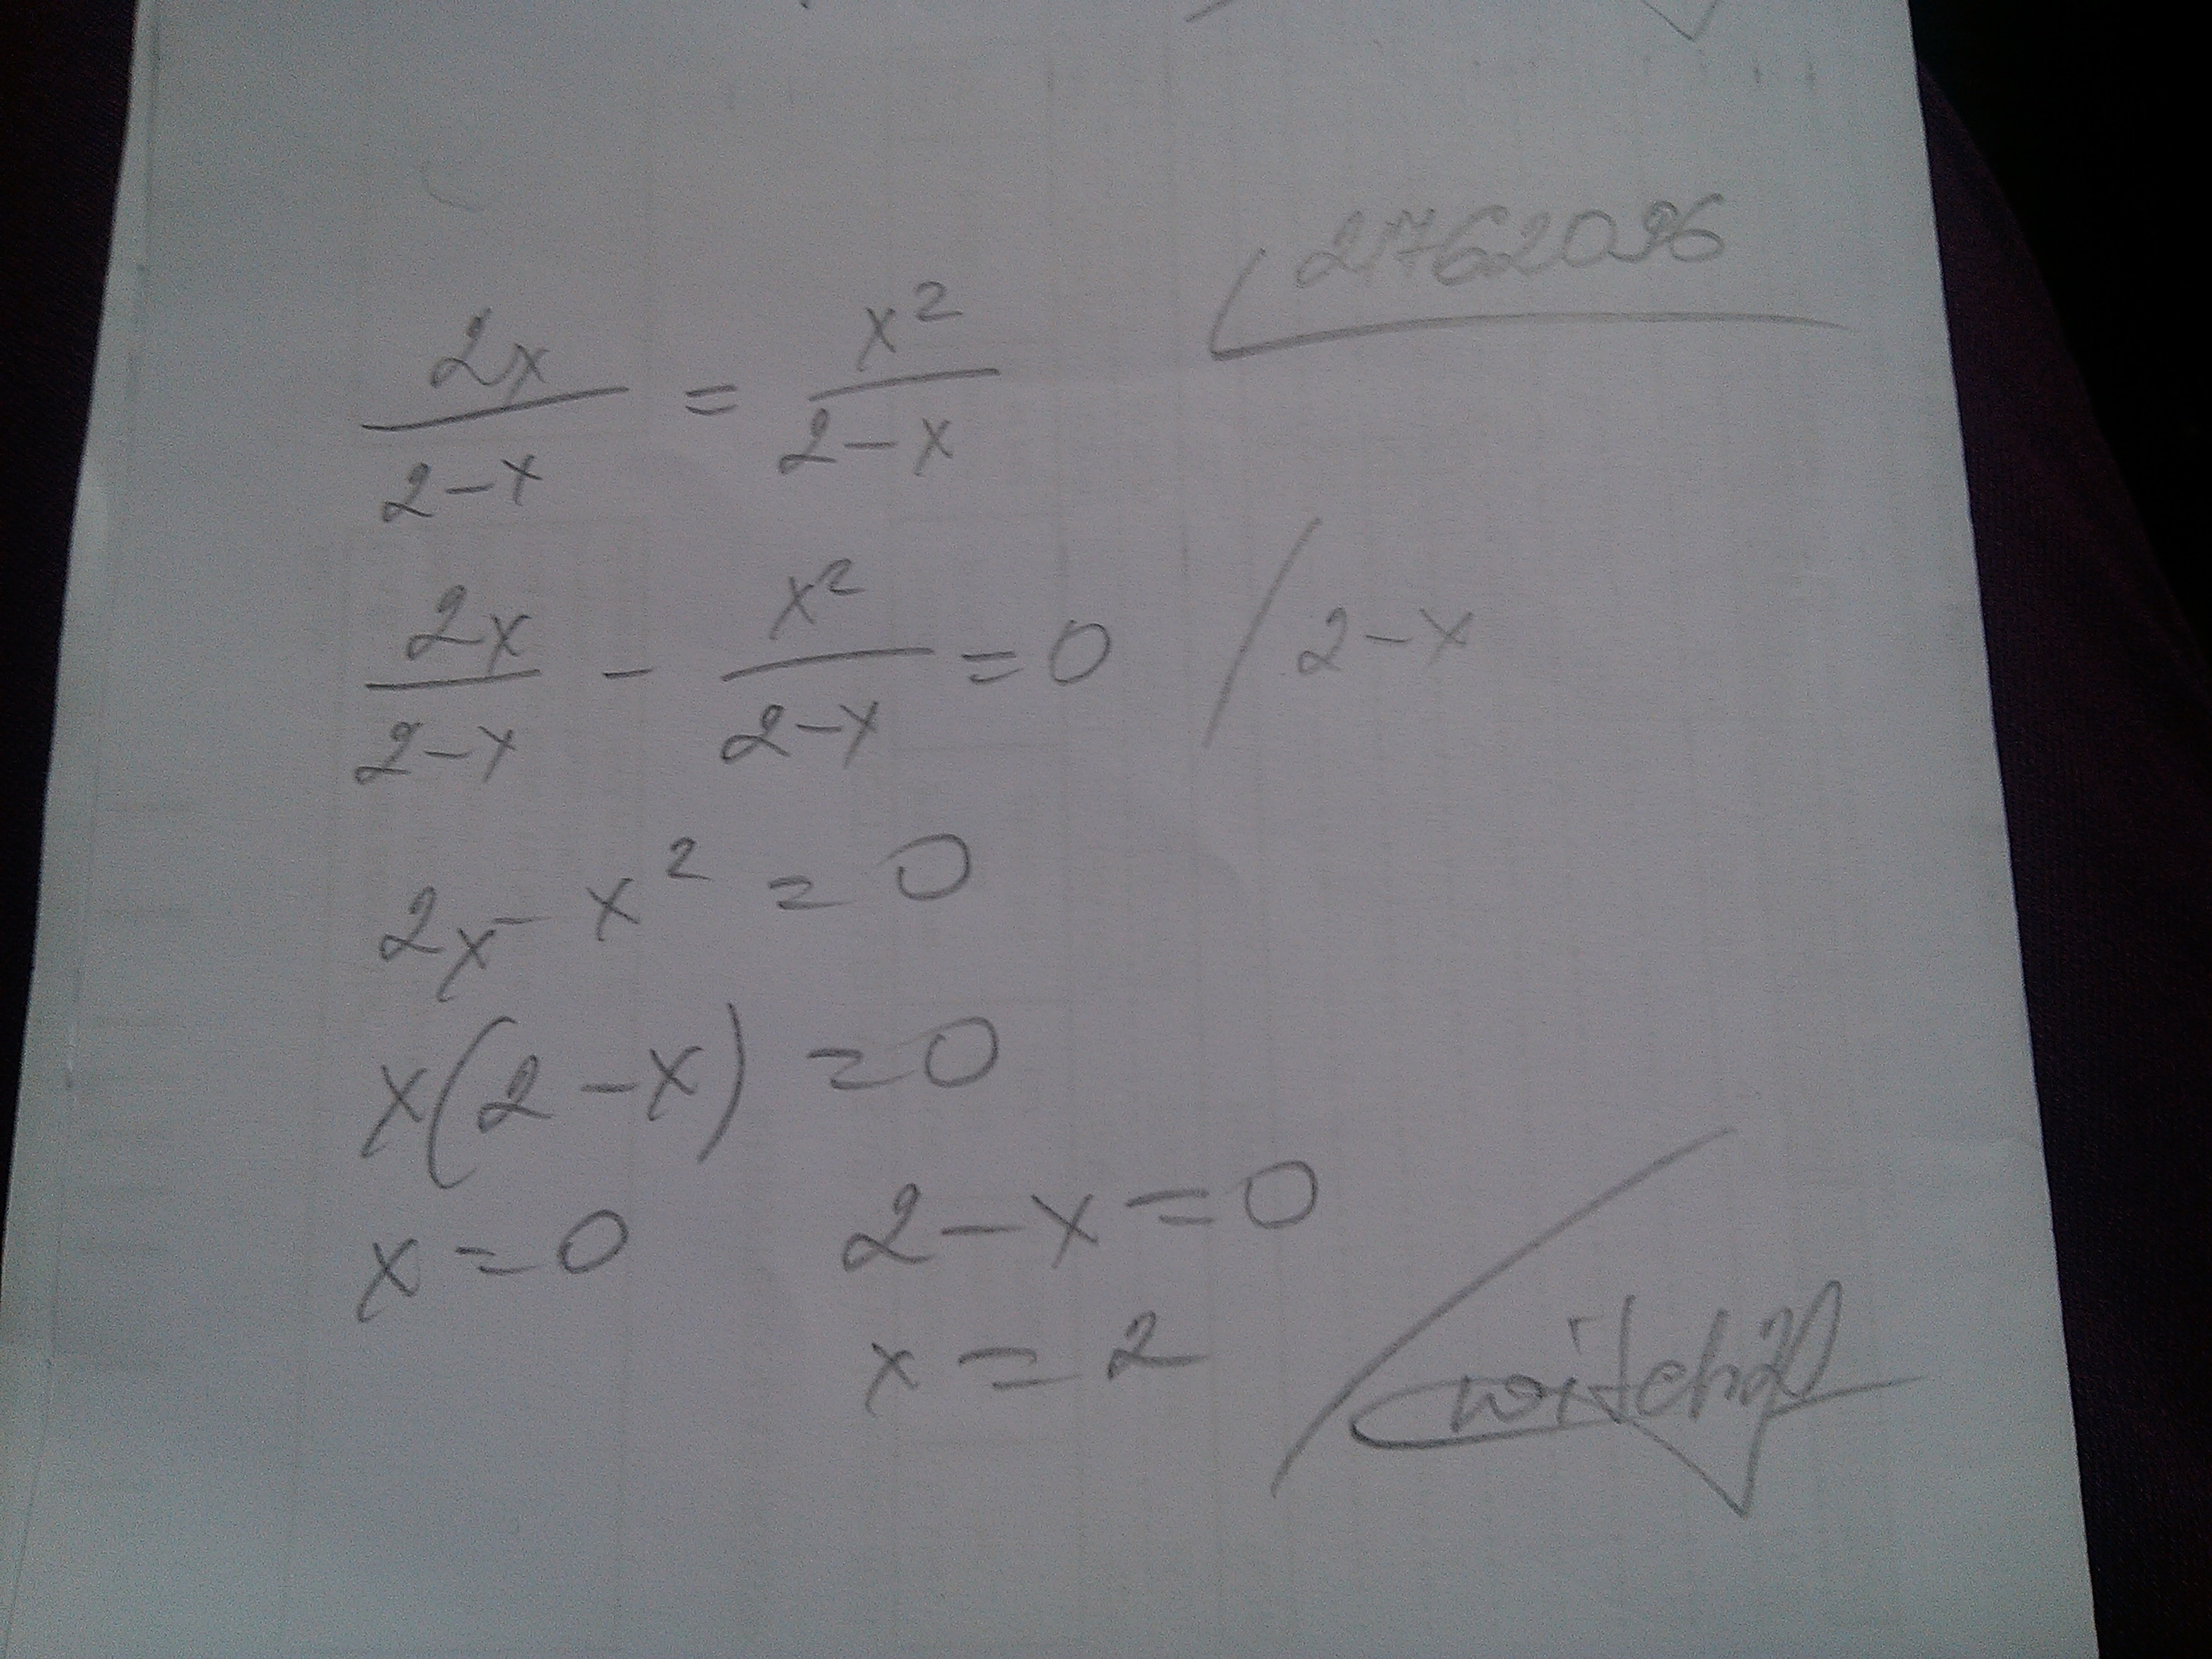 21762096
2x/2-x = x²/2-x
2x/2-x - x²/2-x = 0 / 2-x
2x - x² = 0
x(2-x) = 0
x = 0 2-x = 0
x = 2
witch20